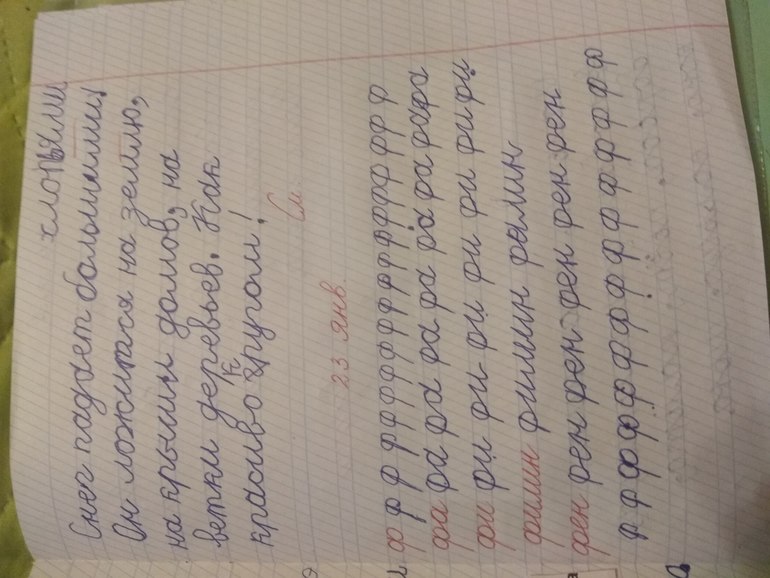 хлопьями
Снег падает большими
Он ложится на землю,
на крыши домов, на
ветки деревьев. Как
к
красиво другом!
См.
23 янв.
ф ф ф ф ф ф ф ф ф ф ф ф ф ф ф ф
фа фа фа фа фа фа фа фа фа
фи фи фи фи фи фи фи фи
филин филин филин
фен фен фен фен фен фен
ф ф ф ф ф ф ф ф ф ф ф ф ф ф ф ф